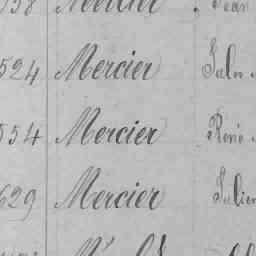 Mercier Jean
524 Mercier Jules
554 Mercier René
629 Mercier Julien